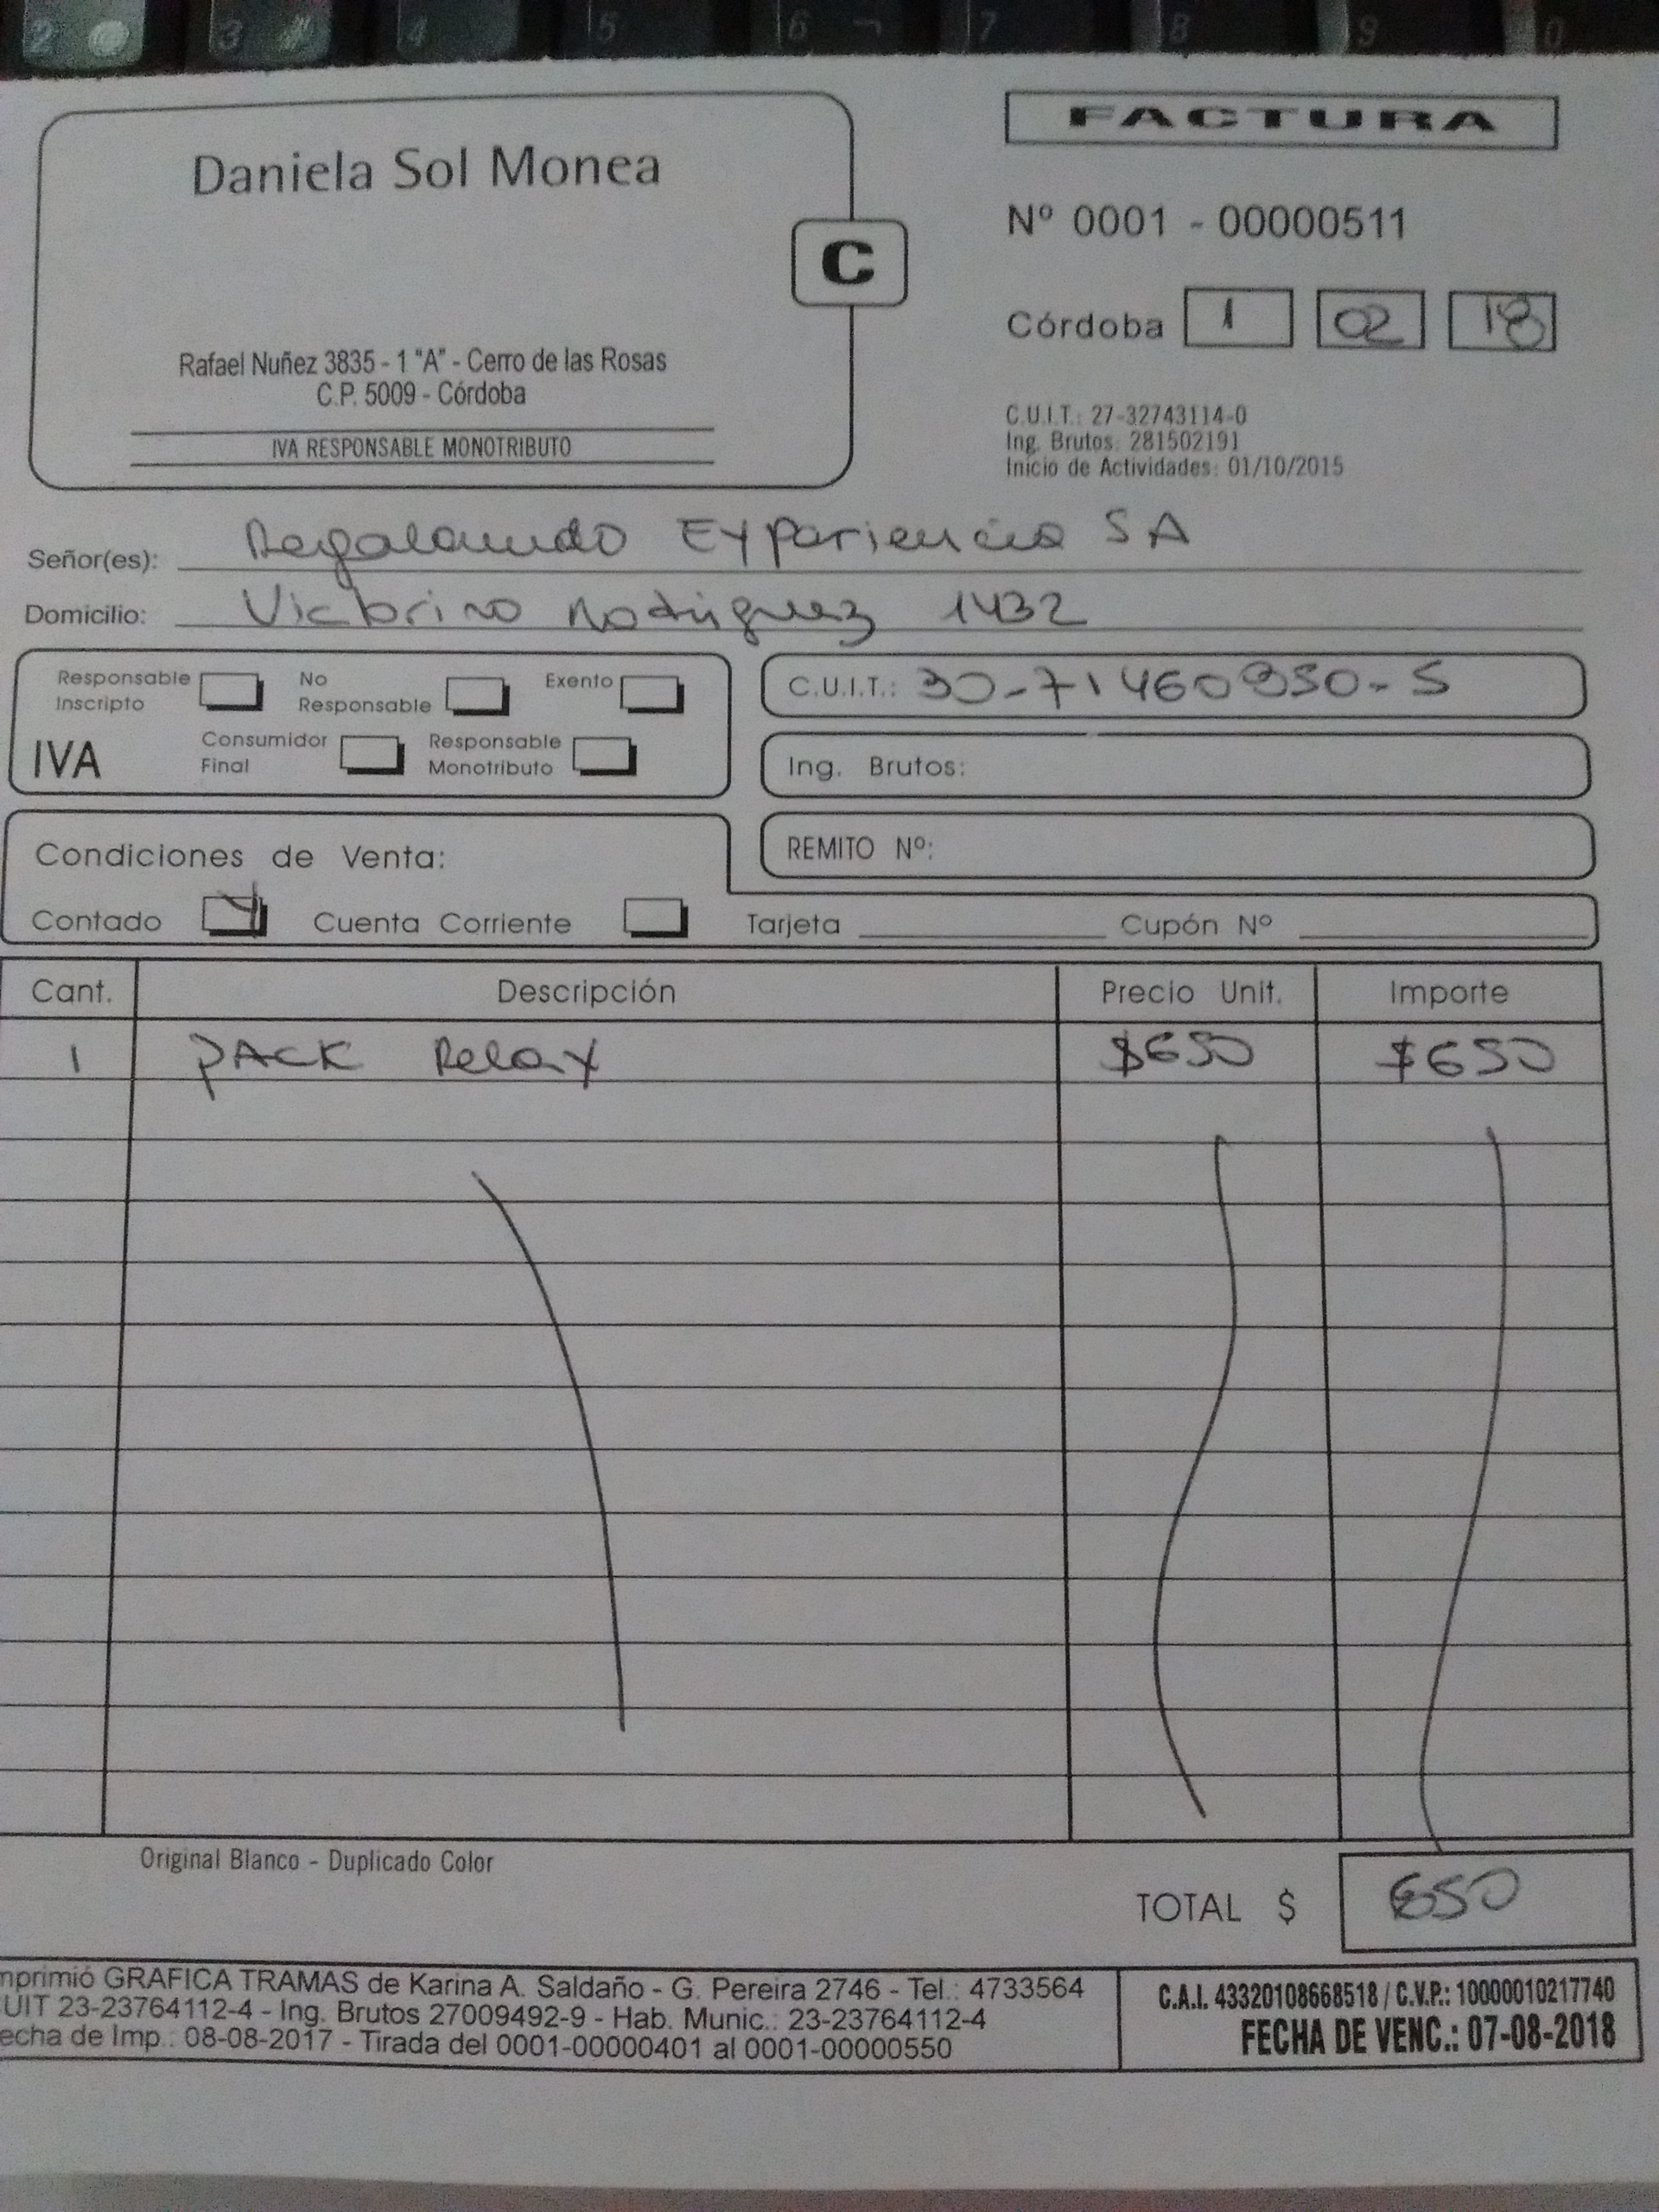 2 @ 3 # 4 5 6 ¬ 7 8 9 0
FACTURA
Daniela Sol Monea
C
Nº 0001 - 00000511
Córdoba 1 02 18
Rafael Nuñez 3835 - 1 "A" - Cerro de las Rosas
C.P. 5009 - Córdoba
IVA RESPONSABLE MONOTRIBUTO
C.U.I.T.: 27-32743114-0
Ing. Brutos: 281502191
Inicio de Actividades: 01/10/2015
Señor(es): Regalando Experiencia SA
Domicilio: Victorino Rodriguez 1432
Responsable Inscripto
No Responsable
Exento
IVA
Consumidor Final
Responsable Monotributo
C.U.I.T.: 30-71460950-5
Ing. Brutos:
REMITO Nº:
Condiciones de Venta:
Contado Cuenta Corriente Tarjeta Cupón Nº
Cant. Descripción Precio Unit. Importe
1 PACK Relax $650 $650
Original Blanco - Duplicado Color
TOTAL $ 650
mprimió GRAFICA TRAMAS de Karina A. Saldaño - G. Pereira 2746 - Tel.: 4733564
UIT 23-23764112-4 - Ing. Brutos 27009492-9 - Hab. Munic.: 23-23764112-4
echa de Imp.: 08-08-2017 - Tirada del 0001-00000401 al 0001-00000550
C.A.I. 43320108668518 / C.V.P.: 10000010217740
FECHA DE VENC.: 07-08-2018